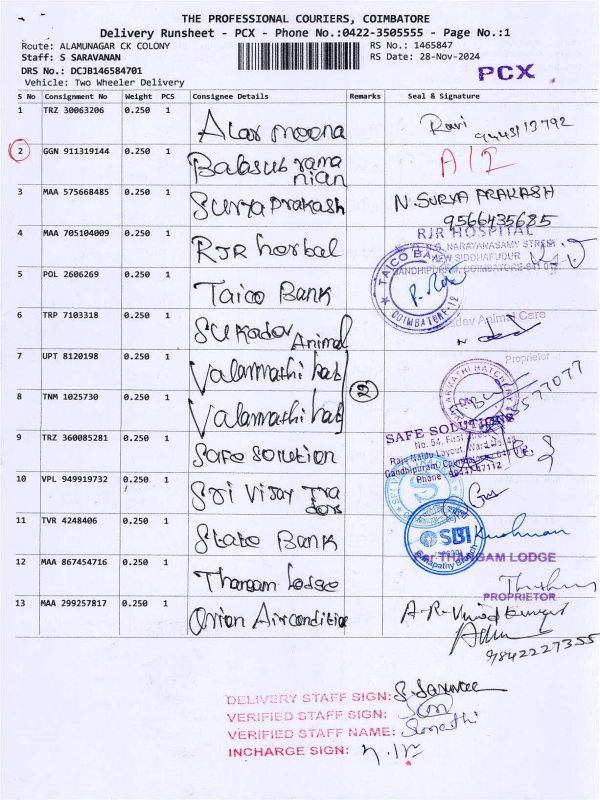 THE PROFESSIONAL COURIERS, COIMBATORE
Delivery Runsheet - PCX - Phone No.:0422-3505555 - Page No.:1
Route: ALAMUNAGAR CK COLONY RS No.: 1465847
Staff: S SARAVANAN RS Date: 28-Nov-2024
DRS No.: DCJB146584701
PCX
Vehicle: Two Wheeler Delivery
S No Consignment No Weight PCS Consignee Details Remarks Seal & Signature
1 TRZ 30063206 0.250 1 Alar moona Ravi
2 GGN 911319144 0.250 1 Balasubramanian
3 MAA 575668485 0.250 1 Surya Prakash N. SURYA PRAKASH
9566435685
4 MAA 705104009 0.250 1 RJR herbal RJR HOSPITAL
5 POL 2606269 0.250 1 Taico Bank TAICO BANK
COIMBATORE-12
6 TRP 7103318 0.250 1 Sukadev Animal
Animal Care
Proprietor
7 UPT 8120198 0.250 1 Valarmathi hat
8 TNM 1025730 0.250 1 Valarmathi hat
9 TRZ 360085281 0.250 1 Safe solution SAFE SOLUTIONS
10 VPL 949919732 0.250 1 Sri Vijay Traders
11 TVR 4248406 0.250 1 State Bank SBI
Ganapathy Branch
12 MAA 867454716 0.250 1 Thangam Lodge THANGAM LODGE
PROPRIETOR
13 MAA 299257817 0.250 1 Orion Airconditioe
9842227355
DELIVERY STAFF SIGN:
VERIFIED STAFF SIGN:
VERIFIED STAFF NAME: Sumathi
INCHARGE SIGN: